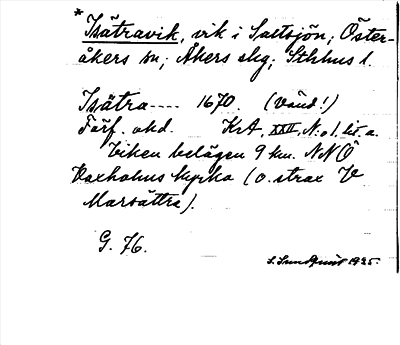 * Isätravik, vik i Saltsjön; Öster-
åkers sn; Åkers skg; Sthlms l.
Isätra---- 1670. (Vänd!)
Förf. okd. KrA, XXII, N:o 1. lit. a.
Viken belägen 9 km. NNÖ
Vaxholms kyrka (o. strax V
Marsättra).
G. 76.
S. Sundquist 1935.